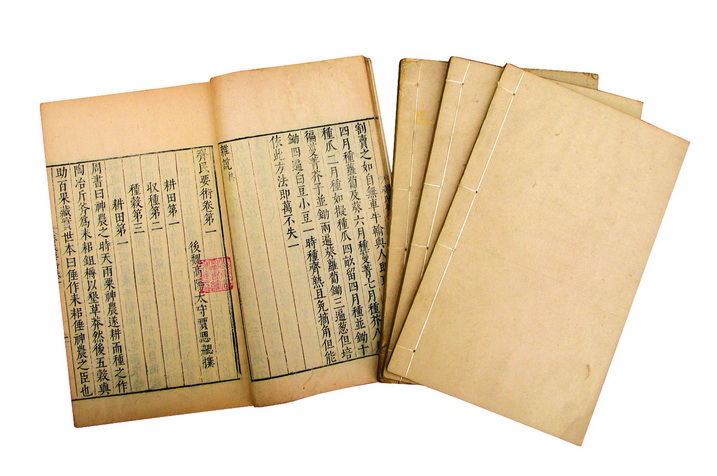 割賣之如自無車牛輸與人
四月種蘿蔔及葵六月種蔓菁七月種芥
種瓜二月種如擬種瓜四畝留四月種並鋤十
徧蔓菁芥子並鋤兩遍葵蘿蔔鋤三遍葱但培
鋤四遍白豆小豆一時種齊熟且免摘角但能
依此方法即萬不失一
雜說
齊民要術卷第一
後魏高陽太守賈思勰撰
耕田第一
收種第二
種穀第三
耕田第一
周書曰神農之時天雨粟神農遂耕而種之作
陶冶斤斧爲耒耜鉏耨以墾草莽然後五穀與
助百果藏實世本曰倕作耒耜倕神農之臣也